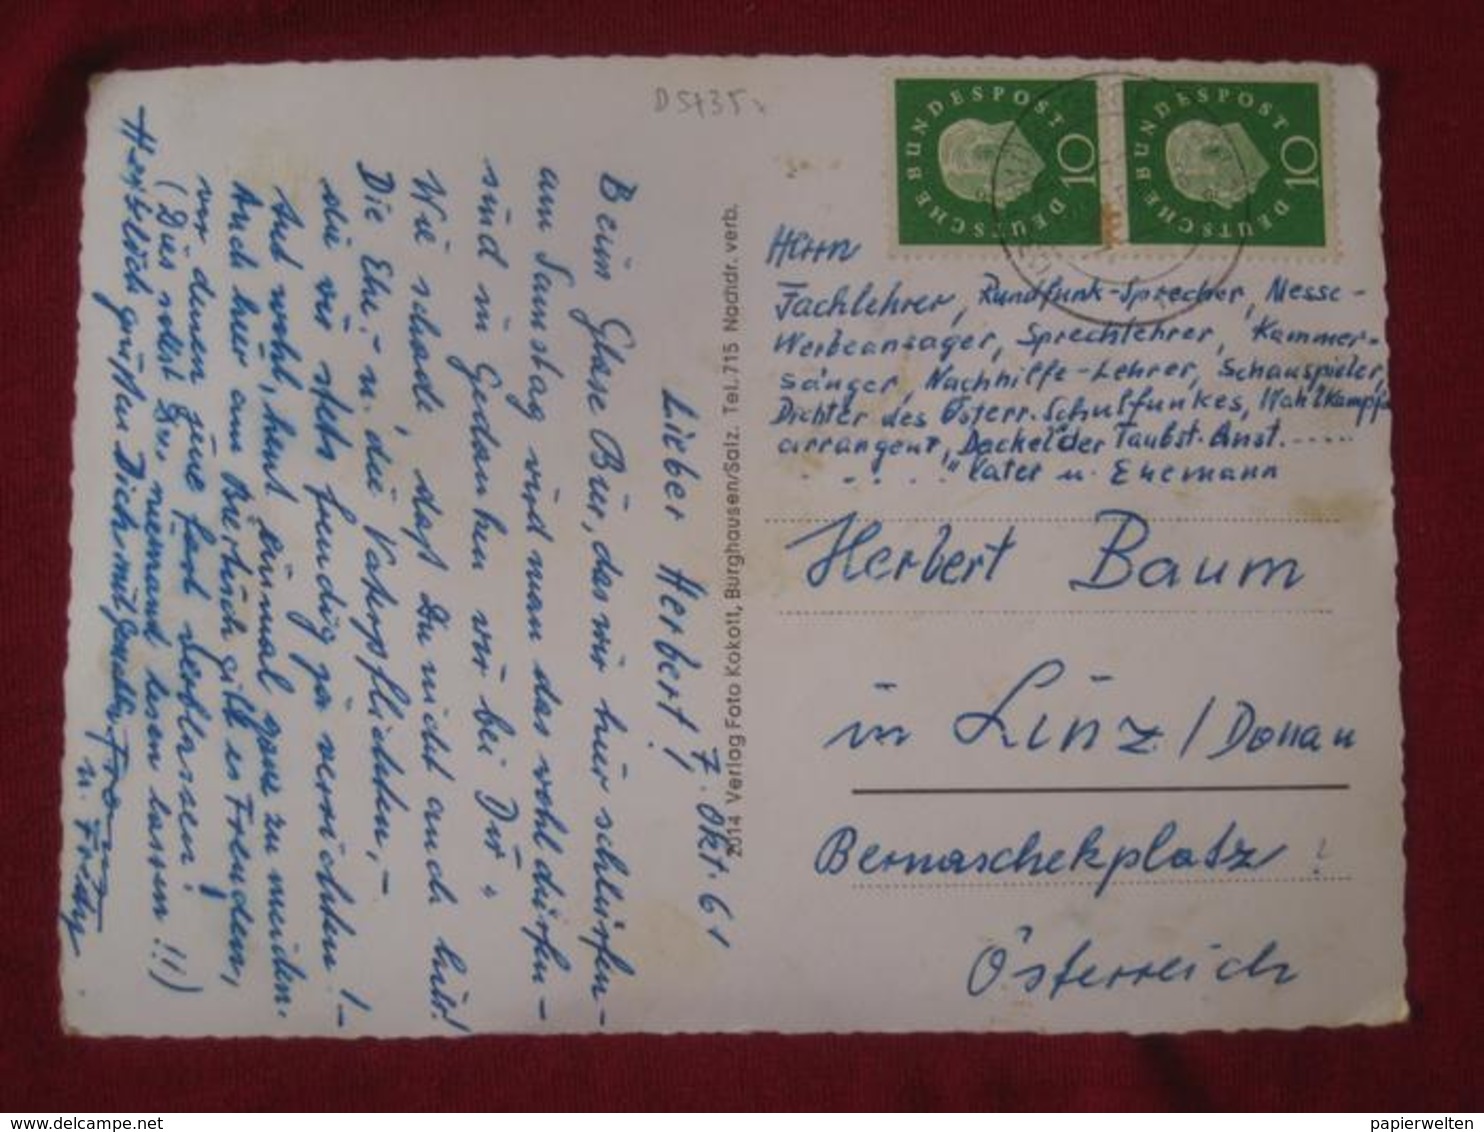 D 5735
DEUTSCHE BUNDESPOST
10
DEUTSCHE BUNDESPOST
10
Herrn
Fachlehrer, Rundfunk-Sprecher, Messe-
Werbeansager, Sprechlehrer, Kammer-
sänger, Nachhilfe-Lehrer, Schauspieler,
Dichter des Österr. Schulfunkes, Wahlkampf-
arrangeut, Dackel der Taubst. Anst. .....
..... Vater u. Ehemann
Herbert Baum
in Linz / Donau
Bernaschekplatz ?
Österreich
2014 Verlag Foto Kokott, Burghausen/Salz. Tel. 715 Nachdr. verb.
7. Okt. 61
Lieber Herbert!
Beim Glase Bier, das wir hier schlürfen –
am Samstag wird man das wohl dürfen –
sind in Gedanken wir bei Dir.
Wie schade, daß Du nicht auch hier!
Die Ehe- u. die Vaterpflichten, –
die wir stets freudig ja verrichten! –
tut wohl, heut einmal ganz zu meiden.
Auch hier am Biertisch gibt es Freuden,
vor denen jene fast verblassen!
(Dies sollst Du niemand lesen lassen!!)
Herzlich grüßen Dich mit
u. Fredy
papierwelten